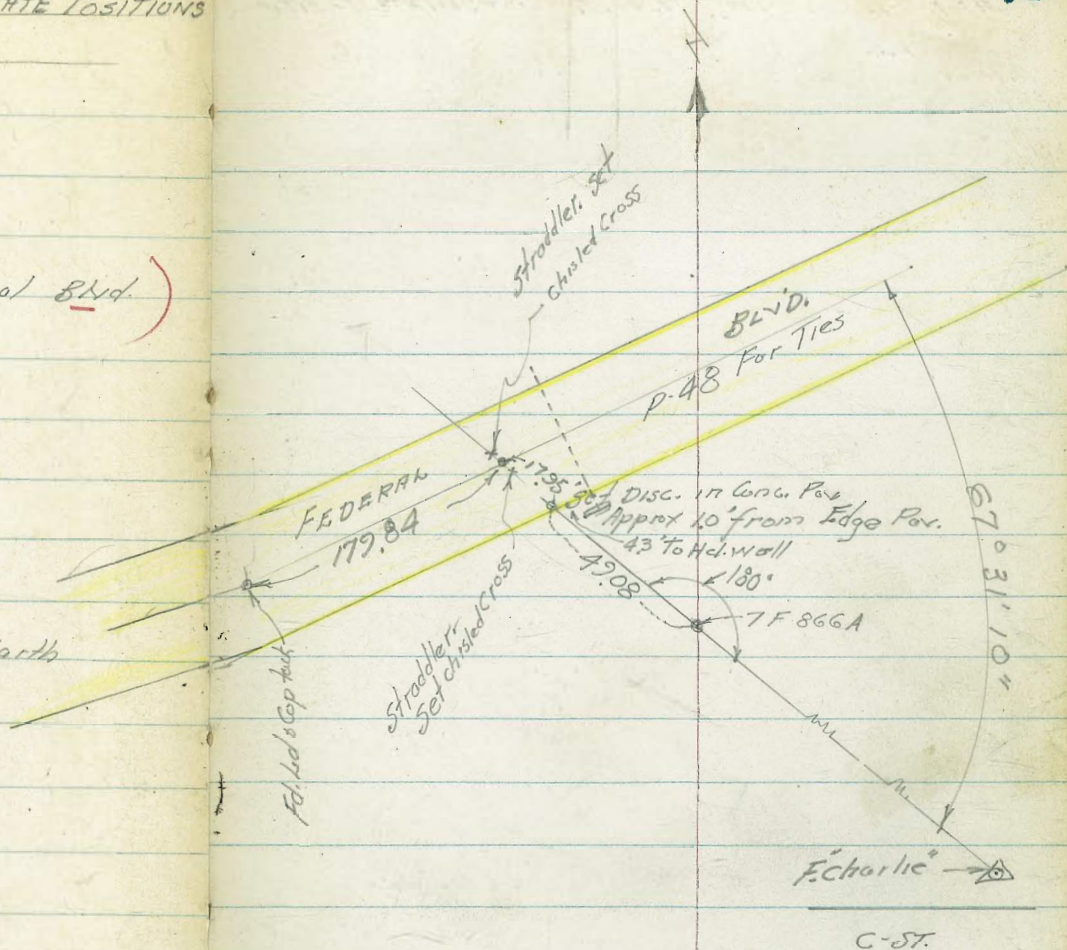 ATE POSITIONS
N
al Blvd.
arth
Straddler. Set
Chisled Cross
BLV'D.
P-48 For Ties
FEDERAL
179.84
17.95
Set Disc. in Conc. Pav.
Approx 1.0' from Edge Pav.
43' To Hd. wall
49.08
180°
7F 866A
67° 31' 10"
Straddler.
Set Chisled Cross
Fd. Ld & Cop tack
F. "Charlie"
C-ST.